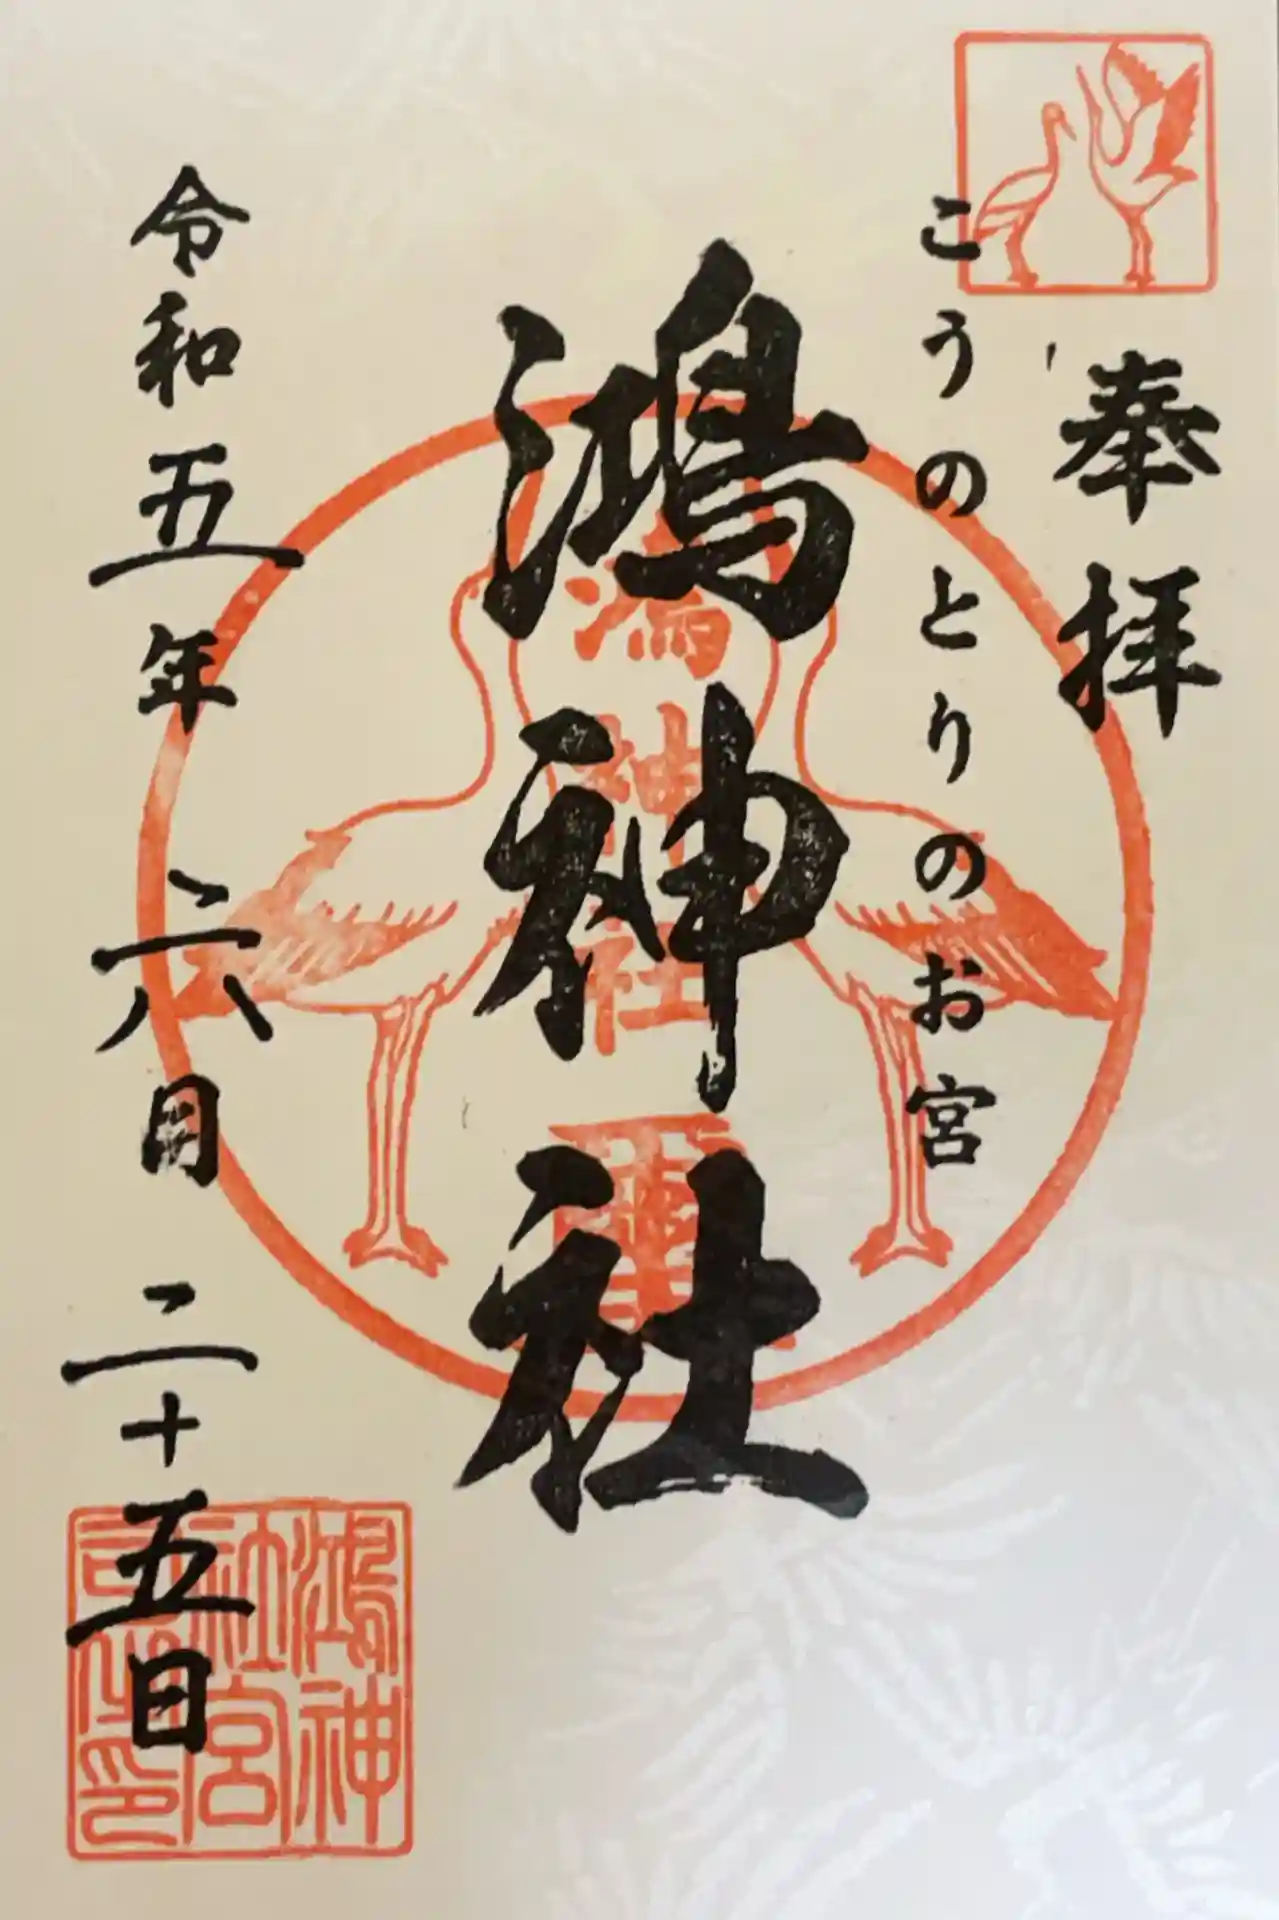 奉拝
こうのとりのお宮
鴻神社
鴻神社
令和五年 六月 二十五日
鴻神社宮司之印